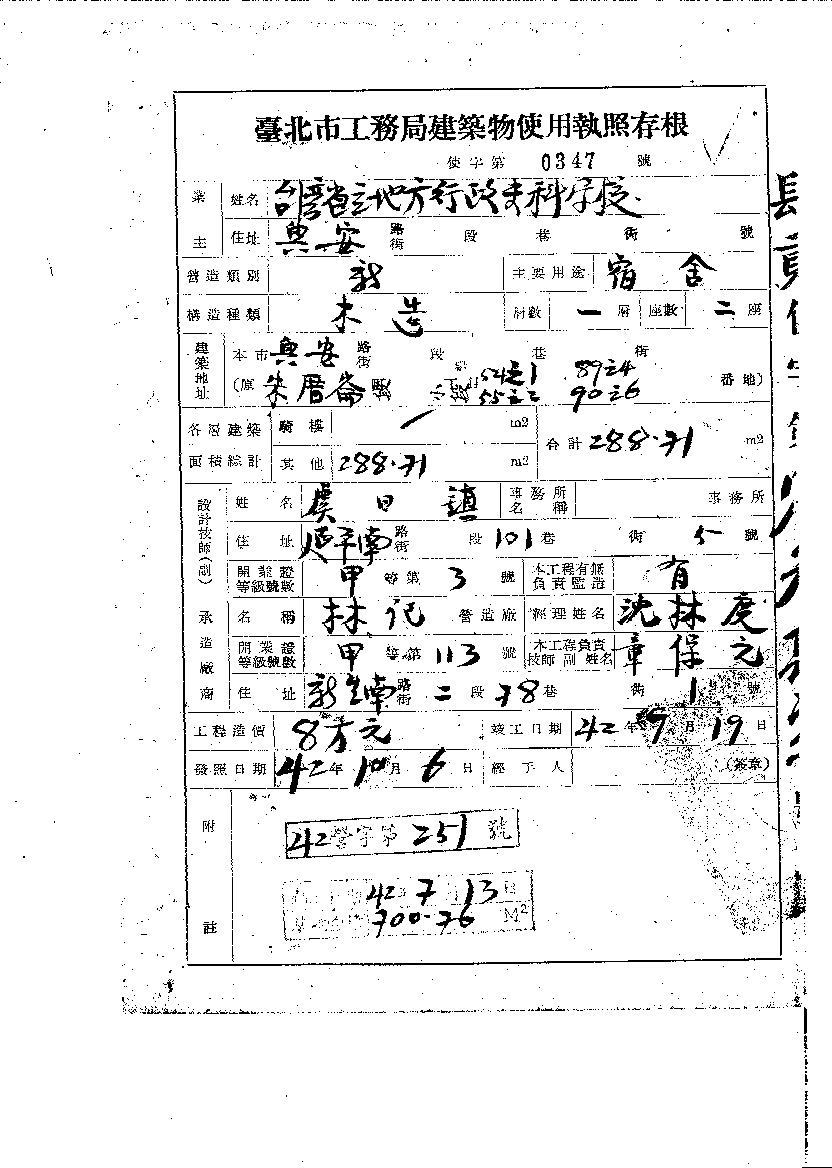 臺北市工務局建築物使用執照存根
使字第 0347 號
業主 姓名 台灣省立地方行政專科學校
住址 興安 路街 段 巷 街 號
營造類別 新 主要用途 宿舍
構造種類 木造 層數 一 層 座數 二 座
建築地址 本市 興安 路街 段 巷 街
(原 朱厝崙 段 54之1 89之4
55之2 90之6 番地)
各層建築面積綜計 騎樓 m2 合計 288.71 m2
其他 288.71 m2
設計技師(副) 姓名 虞曰鎮 事務所名稱 事務所
住址 延平南 路街 段 101 巷 街 5 號
開業證等級號數 甲 等第 3 號 本工程有無負責監造 有
承造廠商 名稱 林記 營造廠 經理姓名 沈林虔
開業證等級號數 甲 等第 113 號 本工程負責技師副姓名 章保元
住址 新生南 路街 二 段 78 巷 街 1 號
工程造價 8万元 竣工日期 42 年 9 月 19 日
發照日期 42 年 10 月 6 日 經手人 (簽章)
附註
42 營字第 251 號
42 7 13 日
700.76 M2